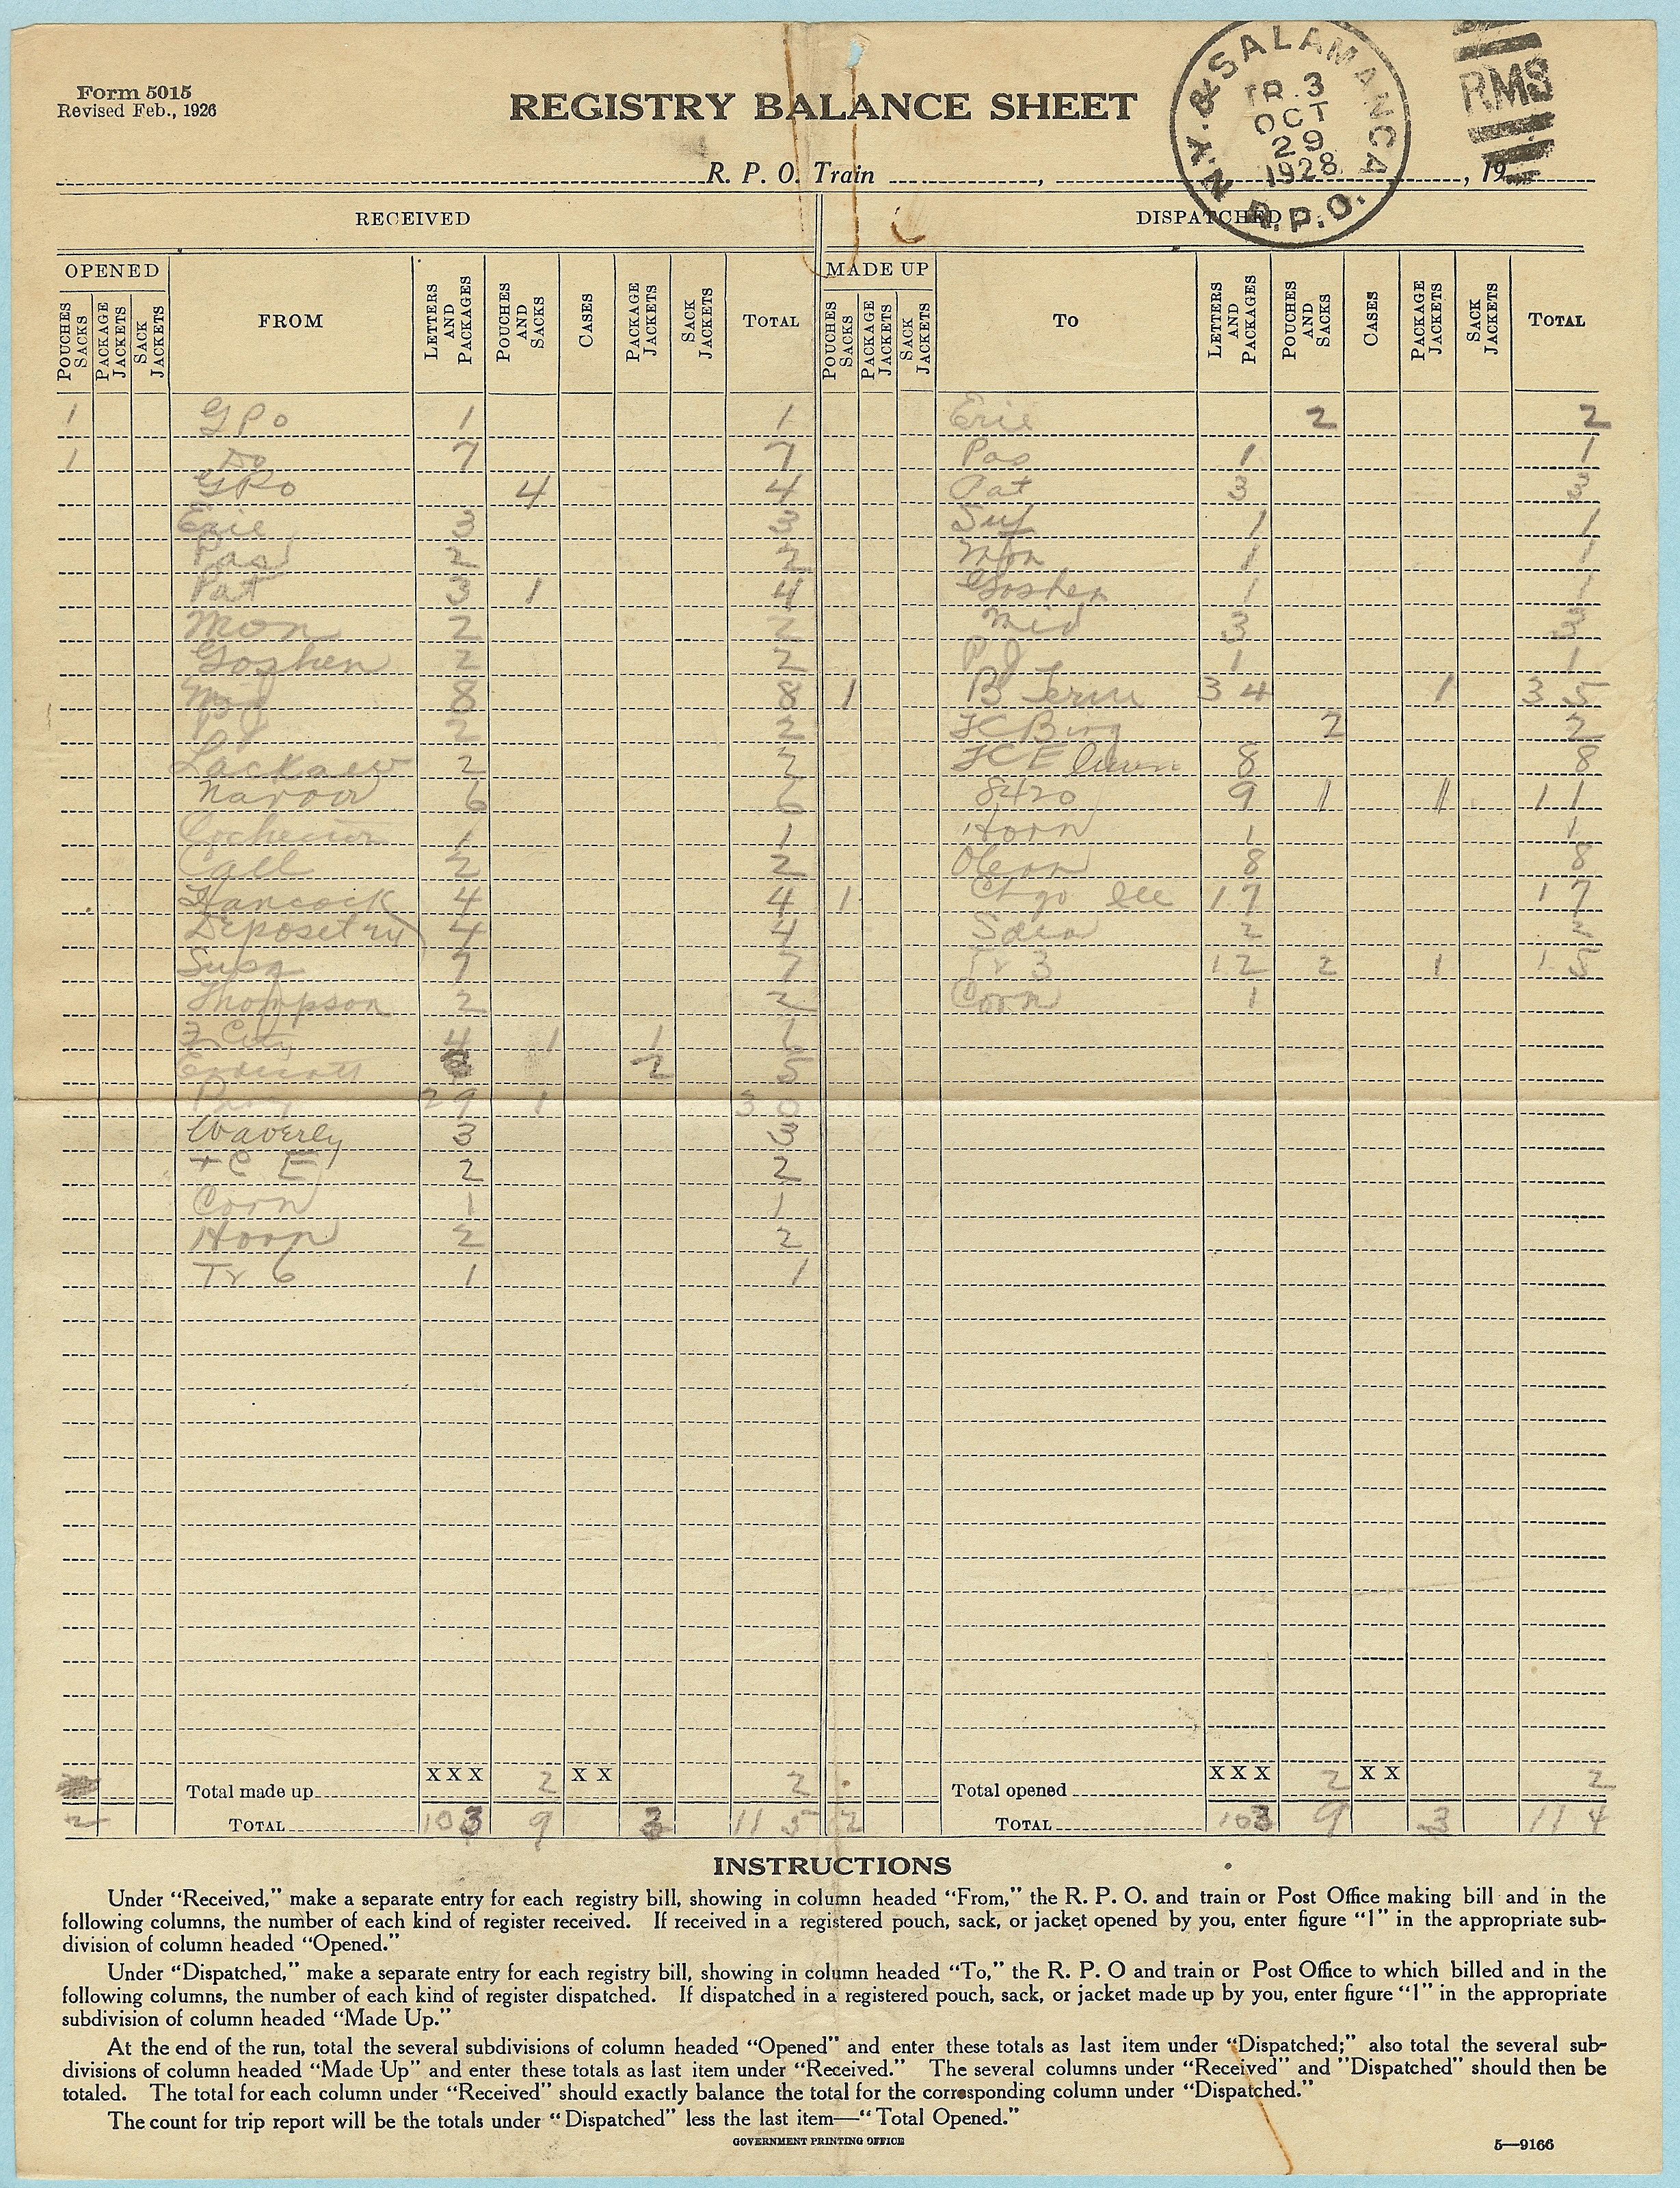 Form 5015
Revised Feb., 1926
REGISTRY BALANCE SHEET
N.Y. & SALAMANCA R.P.O.
TR. 3
OCT
29
1928
RMS
R. P. O. Train , , 19
RECEIVED DISPATCHED
OPENED MADE UP
POUCHES SACKS PACKAGE JACKETS SACK JACKETS FROM LETTERS AND PACKAGES POUCHES AND SACKS CASES PACKAGE JACKETS SACK JACKETS TOTAL POUCHES SACKS PACKAGE JACKETS SACK JACKETS TO LETTERS AND PACKAGES POUCHES AND SACKS CASES PACKAGE JACKETS SACK JACKETS TOTAL
1 GPo 1 1 Erie 2 2
1 Do 7 7 Pas 1 1
GPo 4 4 Pat 3 3
Erie 3 3 Suf 1 1
Pas 2 2 Mon 1 1
Pat 3 1 4 Goshen 1 1
Mon 2 2 Mid 3 3
Goshen 2 2 PJ 1 1
Mid 8 8 1 B Term 34 1 35
PJ 2 2 TC Bing 2 2
Lackaw 2 2 TC E 8 8
Narow 6 6 8420 9 1 1 11
1 1 Horn 1 1
Call 2 2 Olean 8 8
Hancock 4 4 1 Chgo 17 17
Deposit 4 4 2 2
Susq 7 7 Tr 3 12 2 1 15
Thompson 2 2 Corn 1
City 4 1 1 6
Endicott 2 5
29 1 30
Waverly 3 3
TC E 2 2
Corn 1 1
Horn 2 2
Tr 6 1 1
Total made up XXX 2 XX 2 Total opened XXX 2 XX 2
2 TOTAL 103 9 3 115 2 TOTAL 103 9 3 114
INSTRUCTIONS
Under “Received,” make a separate entry for each registry bill, showing in column headed “From,” the R. P. O. and train or Post Office making bill and in the
following columns, the number of each kind of register received. If received in a registered pouch, sack, or jacket opened by you, enter figure “1” in the appropriate sub-
division of column headed “Opened.”
Under “Dispatched,” make a separate entry for each registry bill, showing in column headed “To,” the R. P. O and train or Post Office to which billed and in the
following columns, the number of each kind of register dispatched. If dispatched in a registered pouch, sack, or jacket made up by you, enter figure “1” in the appropriate
subdivision of column headed “Made Up.”
At the end of the run, total the several subdivisions of column headed “Opened” and enter these totals as last item under “Dispatched;” also total the several sub-
divisions of column headed “Made Up” and enter these totals as last item under “Received.” The several columns under “Received” and “Dispatched” should then be
totaled. The total for each column under “Received” should exactly balance the total for the corresponding column under “Dispatched.”
The count for trip report will be the totals under “Dispatched” less the last item—“Total Opened.”
GOVERNMENT PRINTING OFFICE 5—9166